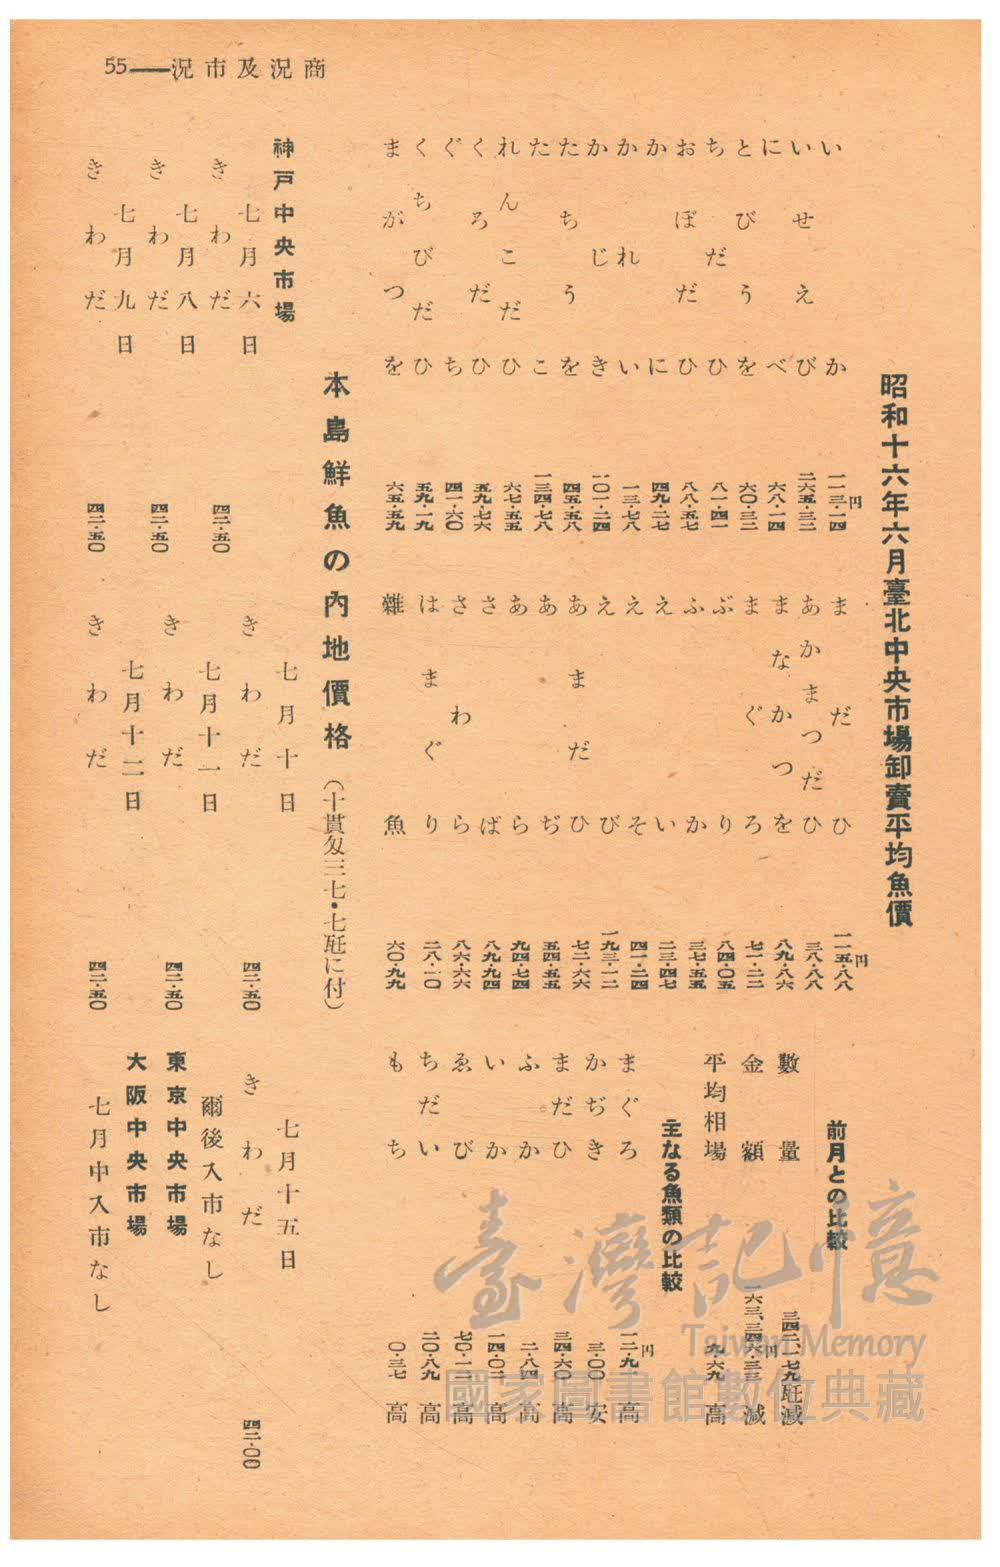 商況及市況——55
昭和十六年六月臺北中央市場卸賣平均魚價
いか 一一三・一四円
いせえび 二六五・三二
にべ 六八・一四
とびうを 六〇・三二
ちだひ 八一・四一
おぼだひ 八八・五七
かに 四九・二七
かれい 一三・七八
かじき 一〇一・二四
たちうを 四五・五八
たこ 一三四・七八
れんこだひ 六七・五五
くろだひ 五九・七六
ぐち 四一・六〇
くちびだひ 五九・一九
まがつを 六五・五九
まだひ 一一五・八八円
あかまつだひ 三八・八八
まなかつを 八九・八六
まぐろ 七一・二二
ぶり 八四・〇五
ふか 三七・五五
えい 二三・四七
えそ 四一・二四
えび 一九三・一二
あまだひ 七二・六六
あぢ 五四・五五
あら 九四・七四
さば 八九・九四
さわら 八六・六六
はまぐり 二八・一〇
雜魚 六〇・九九
前月との比較
數量 三四二、七九瓩減
金額 一六三、三四六・三三円減
平均相場 九・六九高
主なる魚類の比較
まぐろ 高
かぢき 三・〇〇安
まだひ 三四・六〇高
ふか 二・八四高
いか 一四・〇二高
ゑび 七〇・一一高
ちだい 二〇・八九高
もち 〇・三七高
本島鮮魚の內地價格（十貫匁三七・七瓩に付）
神戸中央市場
七月六日
きわだ 四二・五〇
七月八日
きわだ 四二・五〇
七月九日
きわだ 四二・五〇
七月十日
きわだ 四二・五〇
七月十一日
きわだ 四二・五〇
七月十二日
きわだ 四二・五〇
七月十五日
きわだ 四二・〇〇
爾後入市なし
東京中央市場
大阪中央市場
七月中入市なし
臺灣記憶
Taiwan Memory
國家圖書館數位典藏